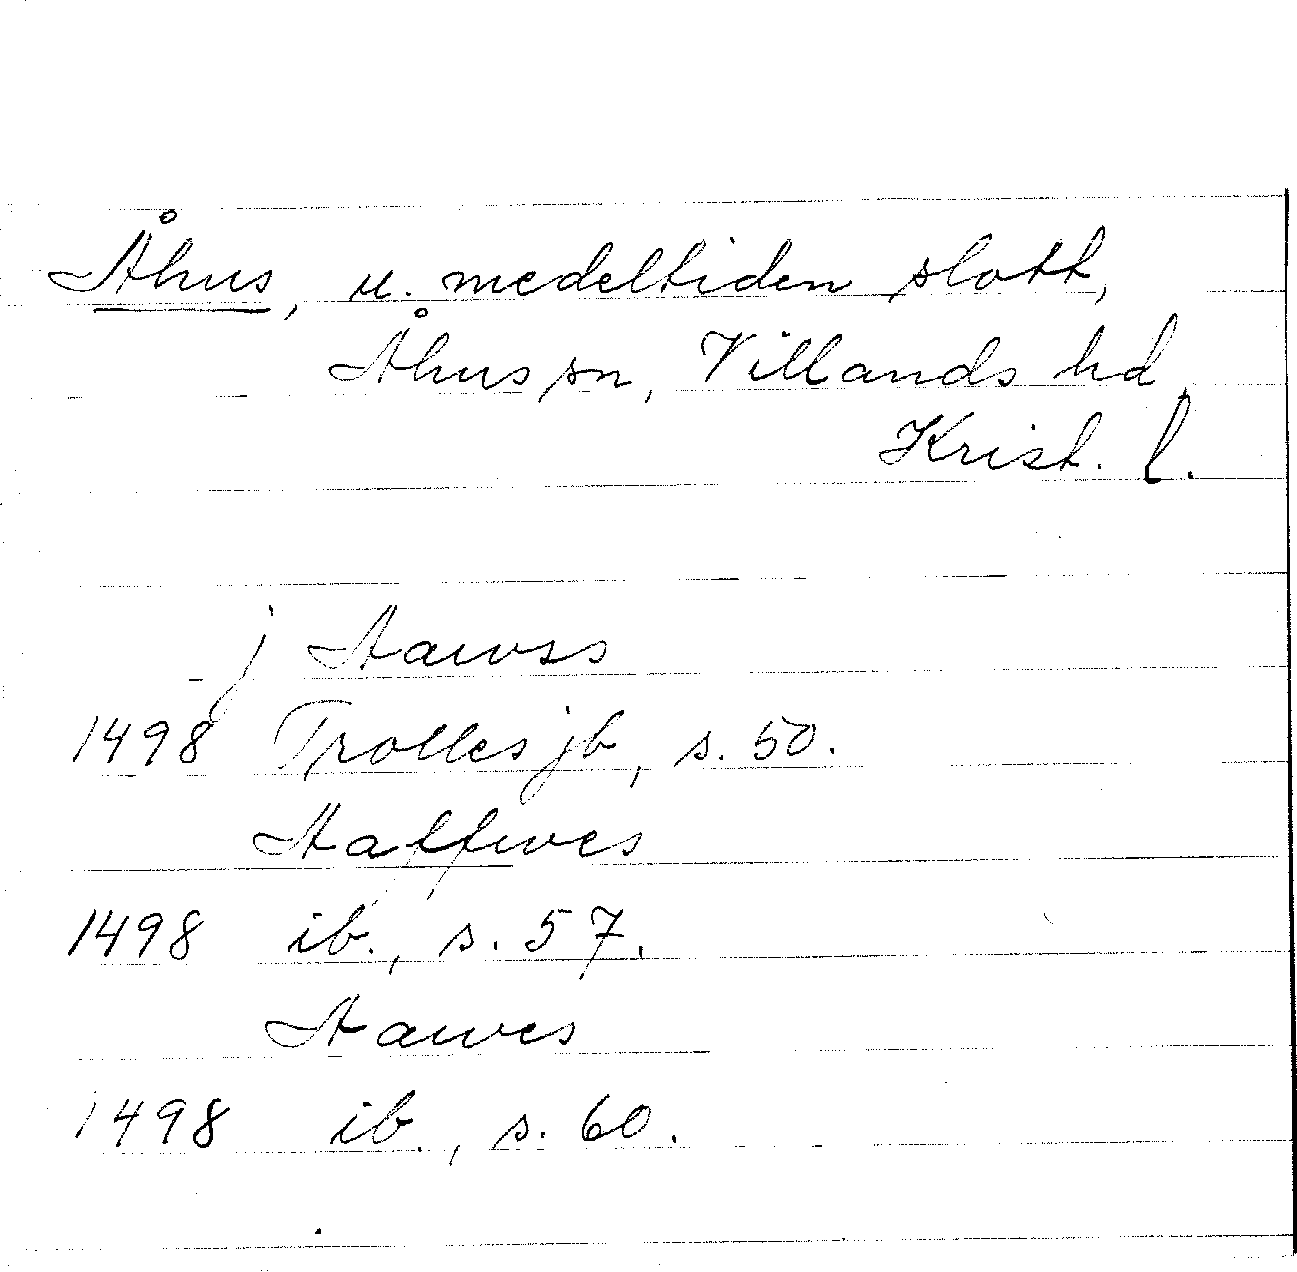 Åhus, u. medeltiden slott,
Åhus sn, Villands hd,
Krist. l.
j Aawss
1498 Trolles jb, s. 50.
Aaffwes
1498 ib., s. 57.
Aawes
1498 ib., s. 60.